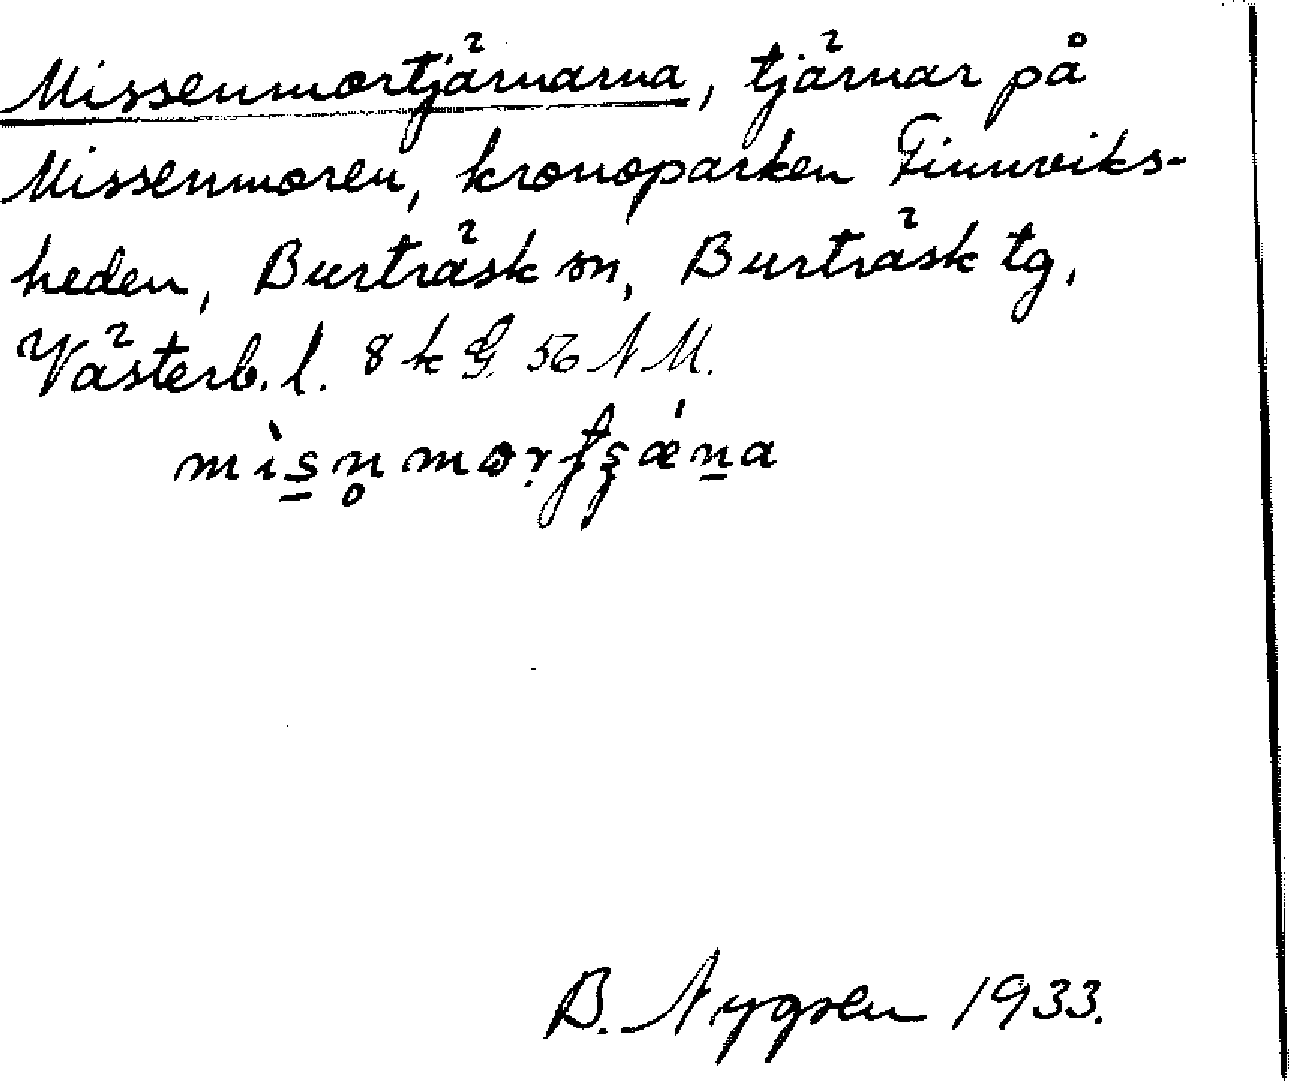 Missenmortjärnarna, tjärnar på
Missenmoren, kronoparken Finnviks-
heden, Burträsk sn, Burträsk tg,
Västerb. l. 8 k G 56 N M.
B. Nygren 1933.